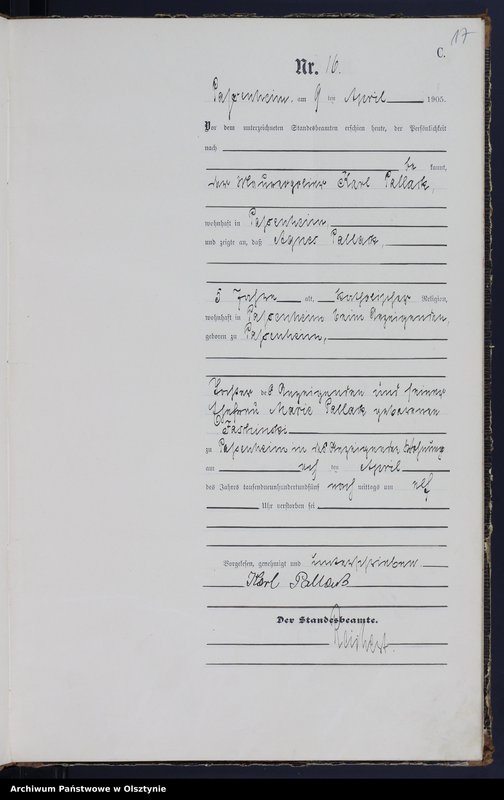 17
C.
Nr. 16.
am 9 ten April 1905.
Vor dem unterzeichneten Standesbeamten erschien heute, der Persönlichkeit
nach
be kannt,
der Maurergeselle Karl Pallack,
wohnhaft in
und zeigte an, daß Agnes Pallack,
5 Jahre alt, katholischer Religion,
wohnhaft in beim Anzeigenden,
geboren zu
Tochter des Anzeigenden und seiner
Ehefrau Marie Pallack geborenen
zu in des Anzeigenden Wohnung
am ten April
des Jahres tausendneunhundertundfünf nach mittags um elf
Uhr verstorben sei
Vorgelesen, genehmigt und unterschrieben
Karl Pallack
Der Standesbeamte.
Archiwum Państwowe w Olsztynie